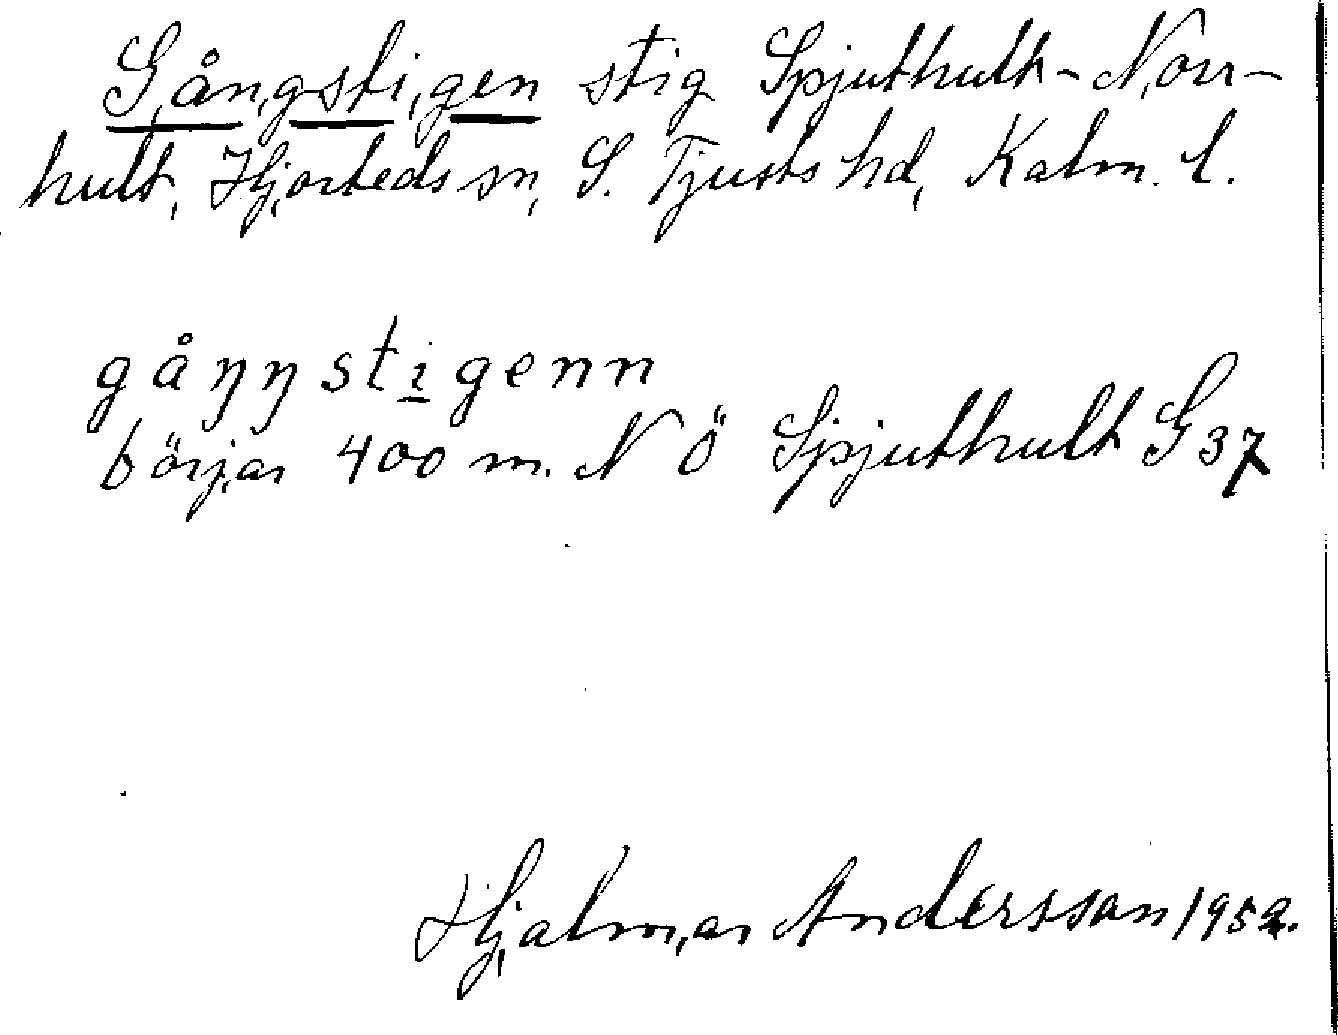 Gångstigen stig Spjuthult-Norr-
hult, Hjorteds sn, S. Tjusts hd, Kalm. l.
gåŋŋstigenn
börjar 400 m. N Ö Spjuthult G 37
Hjalmar Andersson 1952.